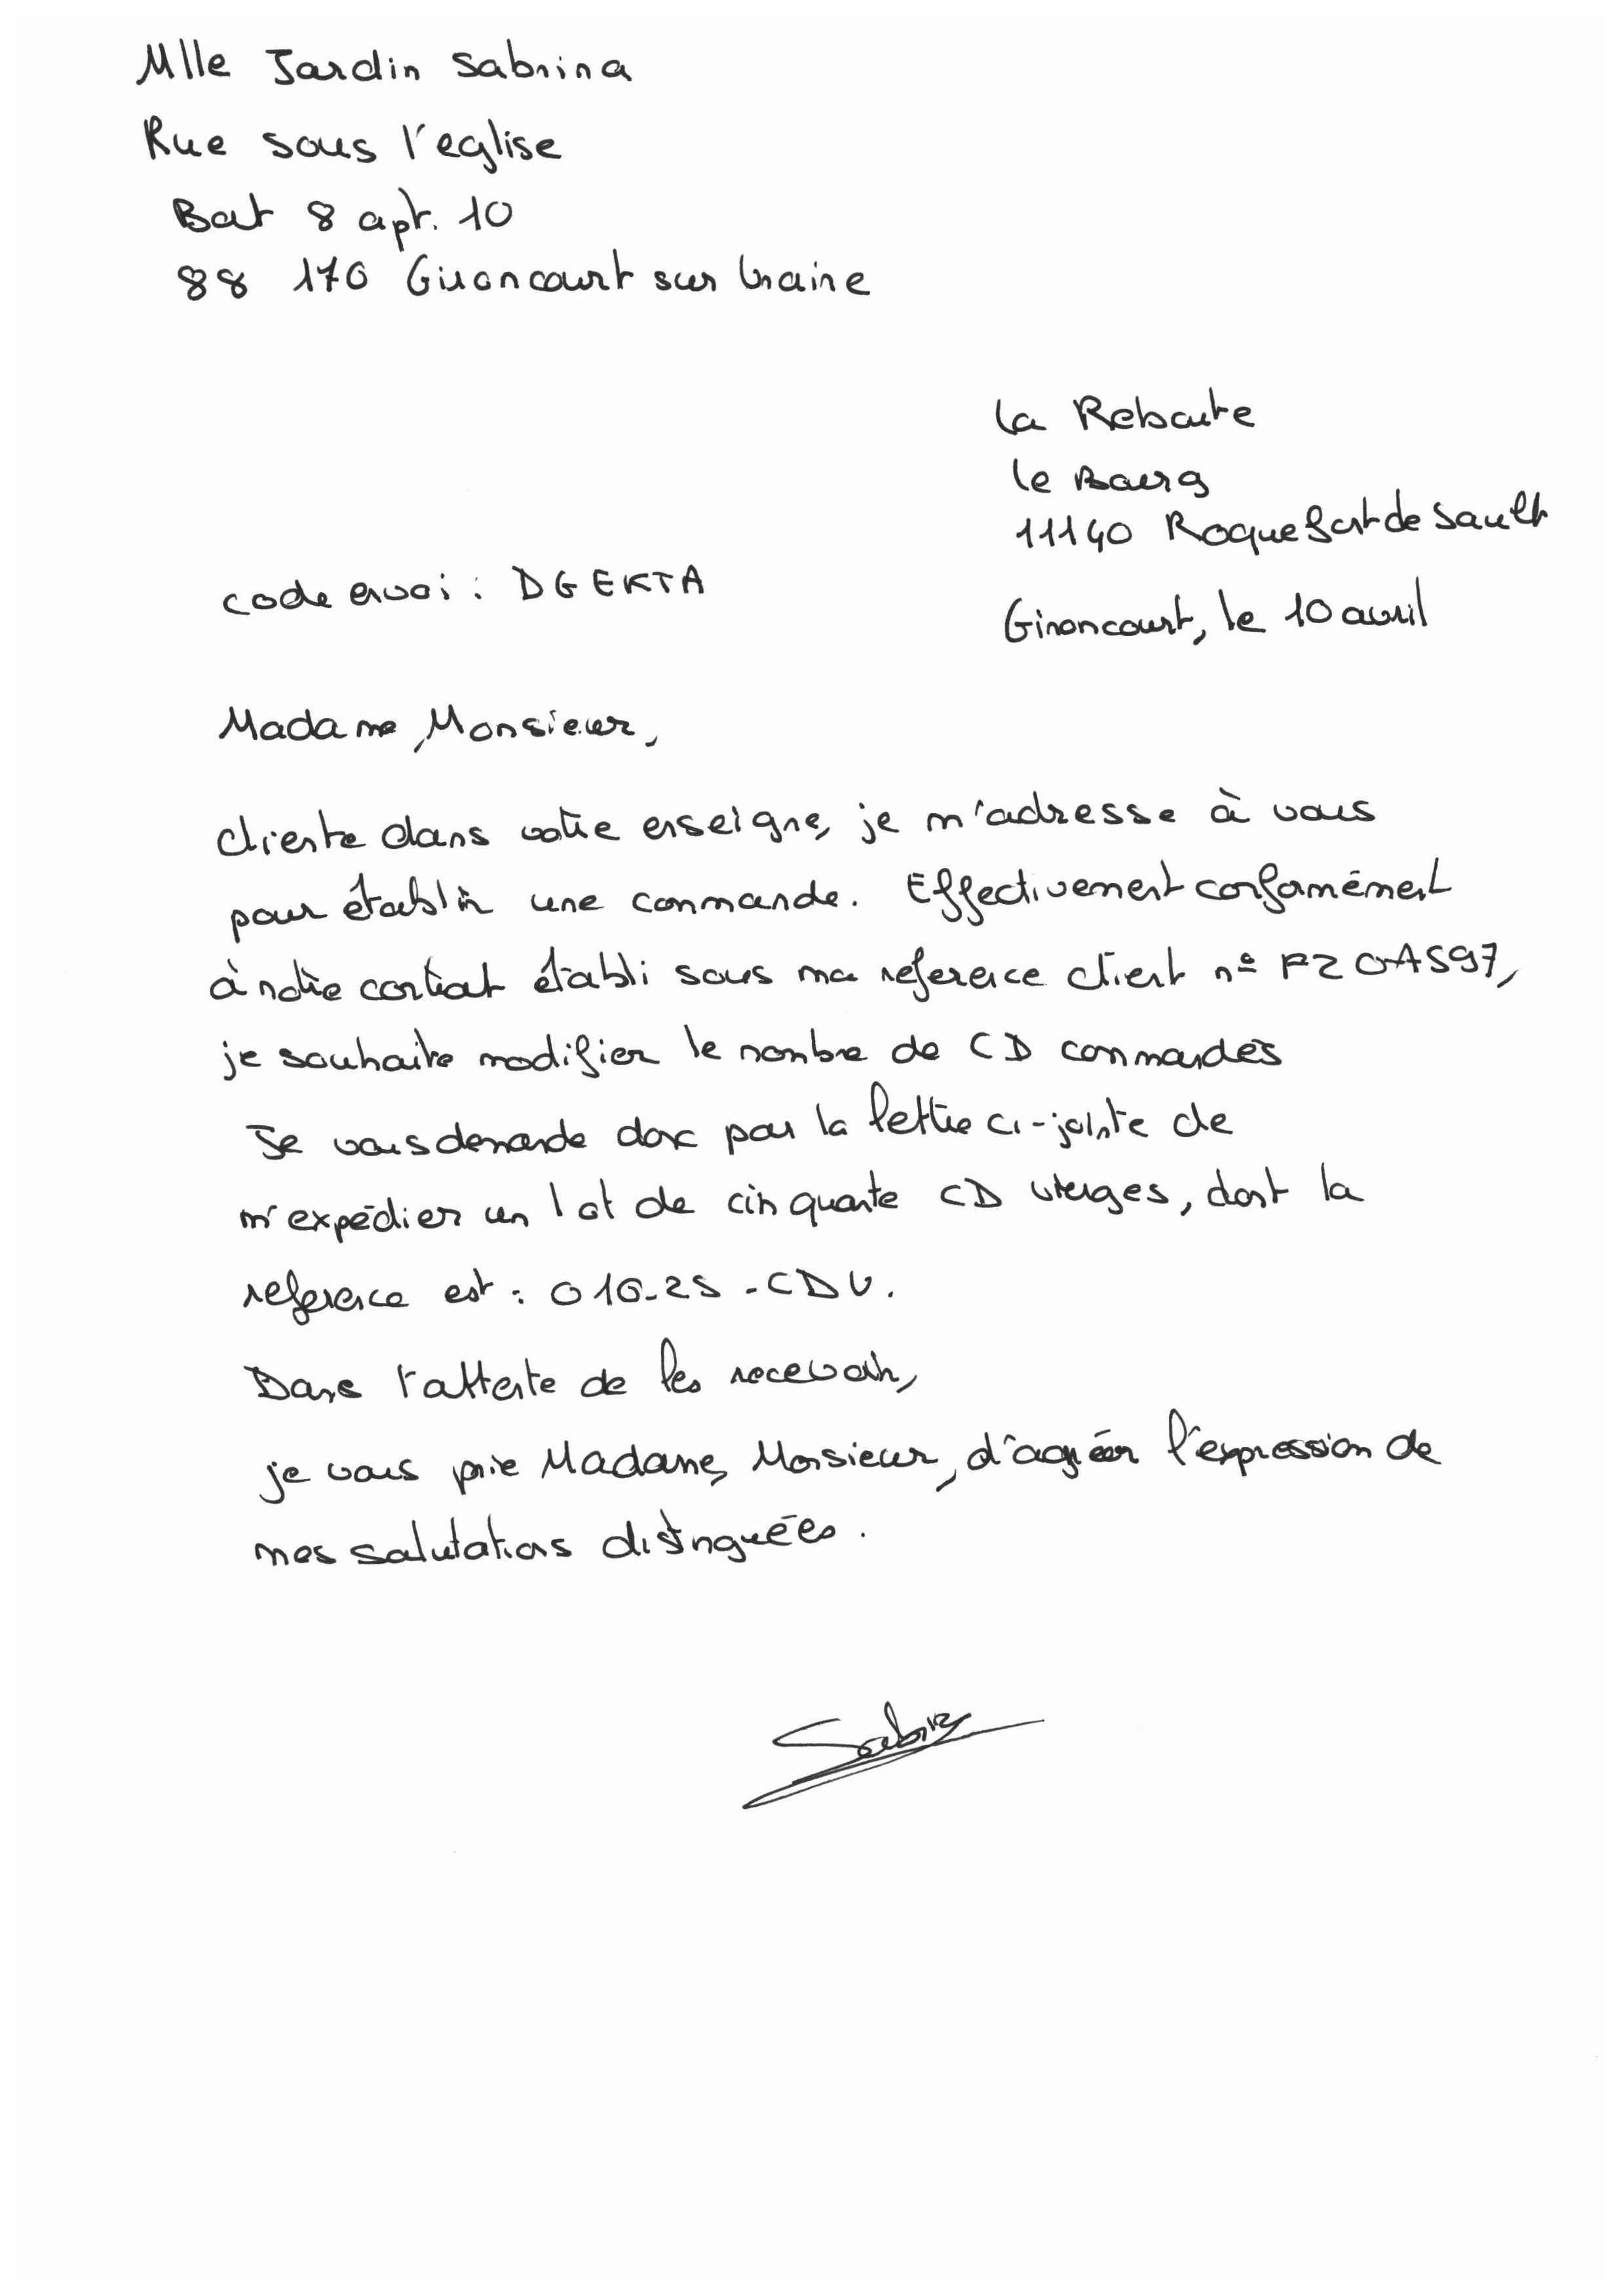 Mlle Jardin Sabrina
Rue sous l'eglise
Bat 8 apt. 10
88 170 Gironcourt sur Vraine
La Reboute
le Bourg
11140 Roquefort de Sault
code envoi : DGEKTA
Gironcourt, le 10 avril
Madame, Monsieur,
cliente dans votre enseigne, je m'adresse à vous
pour établir une commande. Effectivement conformément
à notre contrat établi sous ma reference client n° FZOAS97,
je souhaite modifier le nombre de CD commandés
Je vous demande donc par la lettre ci-jointe de
m'expédier un lot de cinquante CD vierges, dont la
reference est : 016-25-CDV.
Dans l'attente de les recevoir,
je vous prie Madame, Monsieur, d'agréer l'expression de
mes salutations distinguées.